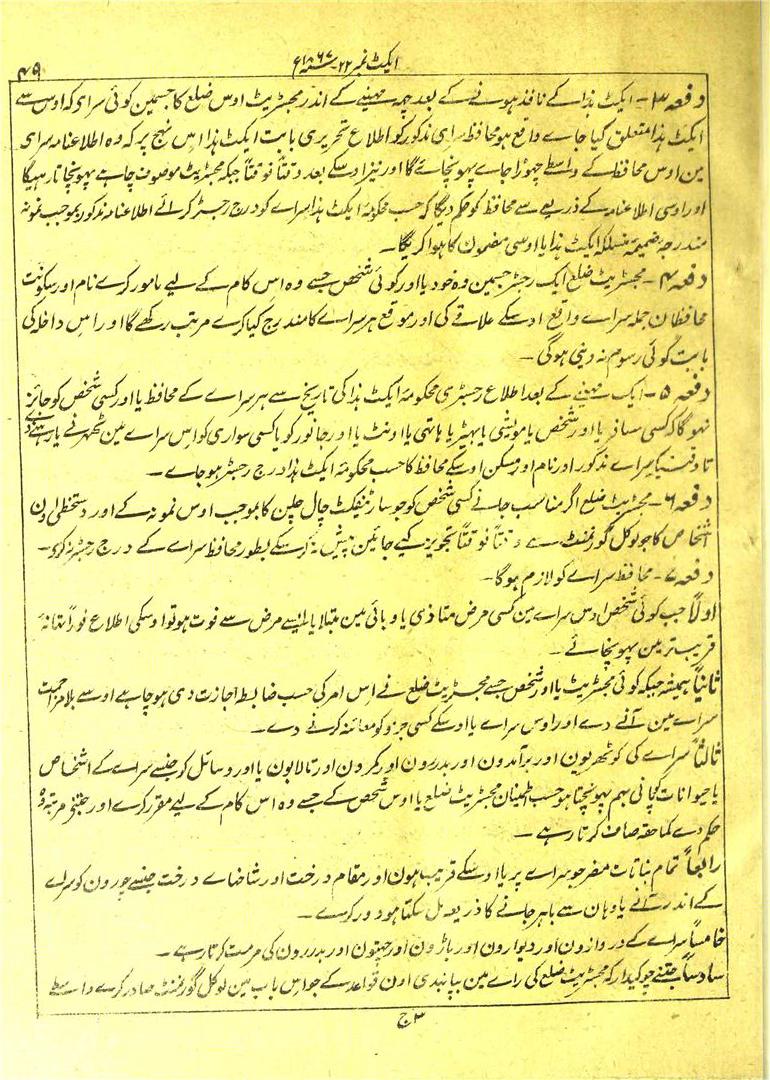 ایکٹ نمبر ۲۲ - سنہ ۱۸۶۷ ع
۴۹
دفعہ ۳ - ایکٹ ہذا کے نافذ ہونے کے بعد چھہ مہینے کے اندر مجسٹریٹ اوس ضلع کا جسمین کوئی سراے کہ اوس سے
ایکٹ ہذا متعلق کیا جاے واقع ہو محافظ سراے مذکور کو اطلاع تحریری بابت ایکٹ ہذا اس نہج پر کہ وہ اطلاعنامہ سراے
مین اوس محافظ کے واسطے چھوڑا جاے پہونچائے گا اور نیز اوسکے بعد وقتاً فوقتاً جبکہ مجسٹریٹ موصوف چاہے پہونچاتا رہیگا
اور اوسی اطلاعنامہ کے ذریعے سے محافظ کو حکم دیگا کہ حسب محکومہ ایکٹ ہذا سراے کو درج رجسٹر کرائے اطلاعنامہ مذکور بموجب نمونہ
مندرجہ ضمیمہ منسلکہ ایکٹ ہذا یا اوسی مضمون کا ہوا کریگا -
دفعہ ۴ - مجسٹریٹ ضلع ایک رجسٹر جسمین وہ خود یا اور کوئی شخص جسے وہ اس کام کے لیے مامور کرے نام اور سکونت
محافظان جملہ سراے واقع اوسکے علاقے کی اور موقع ہر سراے کا مندرج کیا کرے مرتب رکھے گا اور اس داخلہ کی
بابت کوئی رسوم نہ دینی ہوگی -
دفعہ ۵ - ایک مہینے کے بعد اطلاع رجسٹری محکومہ ایکٹ ہذا کی تاریخ سے ہر سراے کے محافظ یا اور کسی شخص کو جائز
نہوگا کہ کسی مسافر یا اور شخص یا مویشی یا بھیڑ یا ہاتھی یا اونٹ یا اور جانور کو یا کسی سواری کو اس سراے مین ٹھہرنے یا رہنے دے
تا وقتیکہ سراے مذکور اور نام اور مسکن اوسکے محافظ کا حسب محکومہ ایکٹ ہذا درج رجسٹر ہو جاے -
دفعہ ۶ - مجسٹریٹ ضلع اگر مناسب جانے کسی شخص کو جو سارٹیفکٹ چال چلن کا بموجب اوس نمونہ کے اور دستخطی اون
اشخاص کا جو لوکل گورنمنٹ سے وقتاً فوقتاً تجویز کیے جائین پیش نہ کرسکے بطور محافظ سراے کے درج رجسٹر نہ کرے -
دفعہ ۷ - محافظ سراے کو لازم ہوگا -
اولاً جب کوئی شخص اوس سراے مین کسی مرض متاذی یا وبائی مین مبتلا یا ایسے مرض سے فوت ہو تو اوسکی اطلاع فوراً تھانہ
قریب تر مین پہونچائے -
ثانیاً ہمیشہ جبکہ کوئی مجسٹریٹ یا اور شخص جسے مجسٹریٹ ضلع نے اس امر کی حسب ضابطہ اجازت دی ہو چاہے اوسے بلا مزاحمت
سراے مین آنے دے اور اوس سراے یا اوسکے کسی جزو کو معائنہ کرنے دے -
ثالثاً سراے کی کوٹھریون اور برآمدون اور بدررون اور کمرون اور تالابون یا اور وسائل کو جنسے سراے کے اشخاص
یا حیوانات کو پانی بہم پہونچتا ہو حسب اطمینان مجسٹریٹ ضلع یا اوس شخص کے جسے وہ اس کام کے لیے مقرر کرے اور جتنی مرتبہ وہ
حکم دے کماحقہ صاف کرتا رہے -
رابعاً تمام نباتات مضر جو سراے پر یا اوسکے قریب ہون اور مقام درخت اور شاخہاے درخت جنسے چورون کو سراے
کے اندر آنے یا وہان سے باہر جانے کا ذریعہ مل سکتا ہو دور کرے -
خامساً سراے کے دروازون اور دیوارون اور باڑون اور چھتون اور بدررون کی مرمت کرتا رہے -
سادساً جتنے چوکیدار کہ مجسٹریٹ ضلع کی راے مین بپابندی اون قواعد کے جو اس باب مین لوکل گورنمنٹ صادر کرے واسطے
۳ج